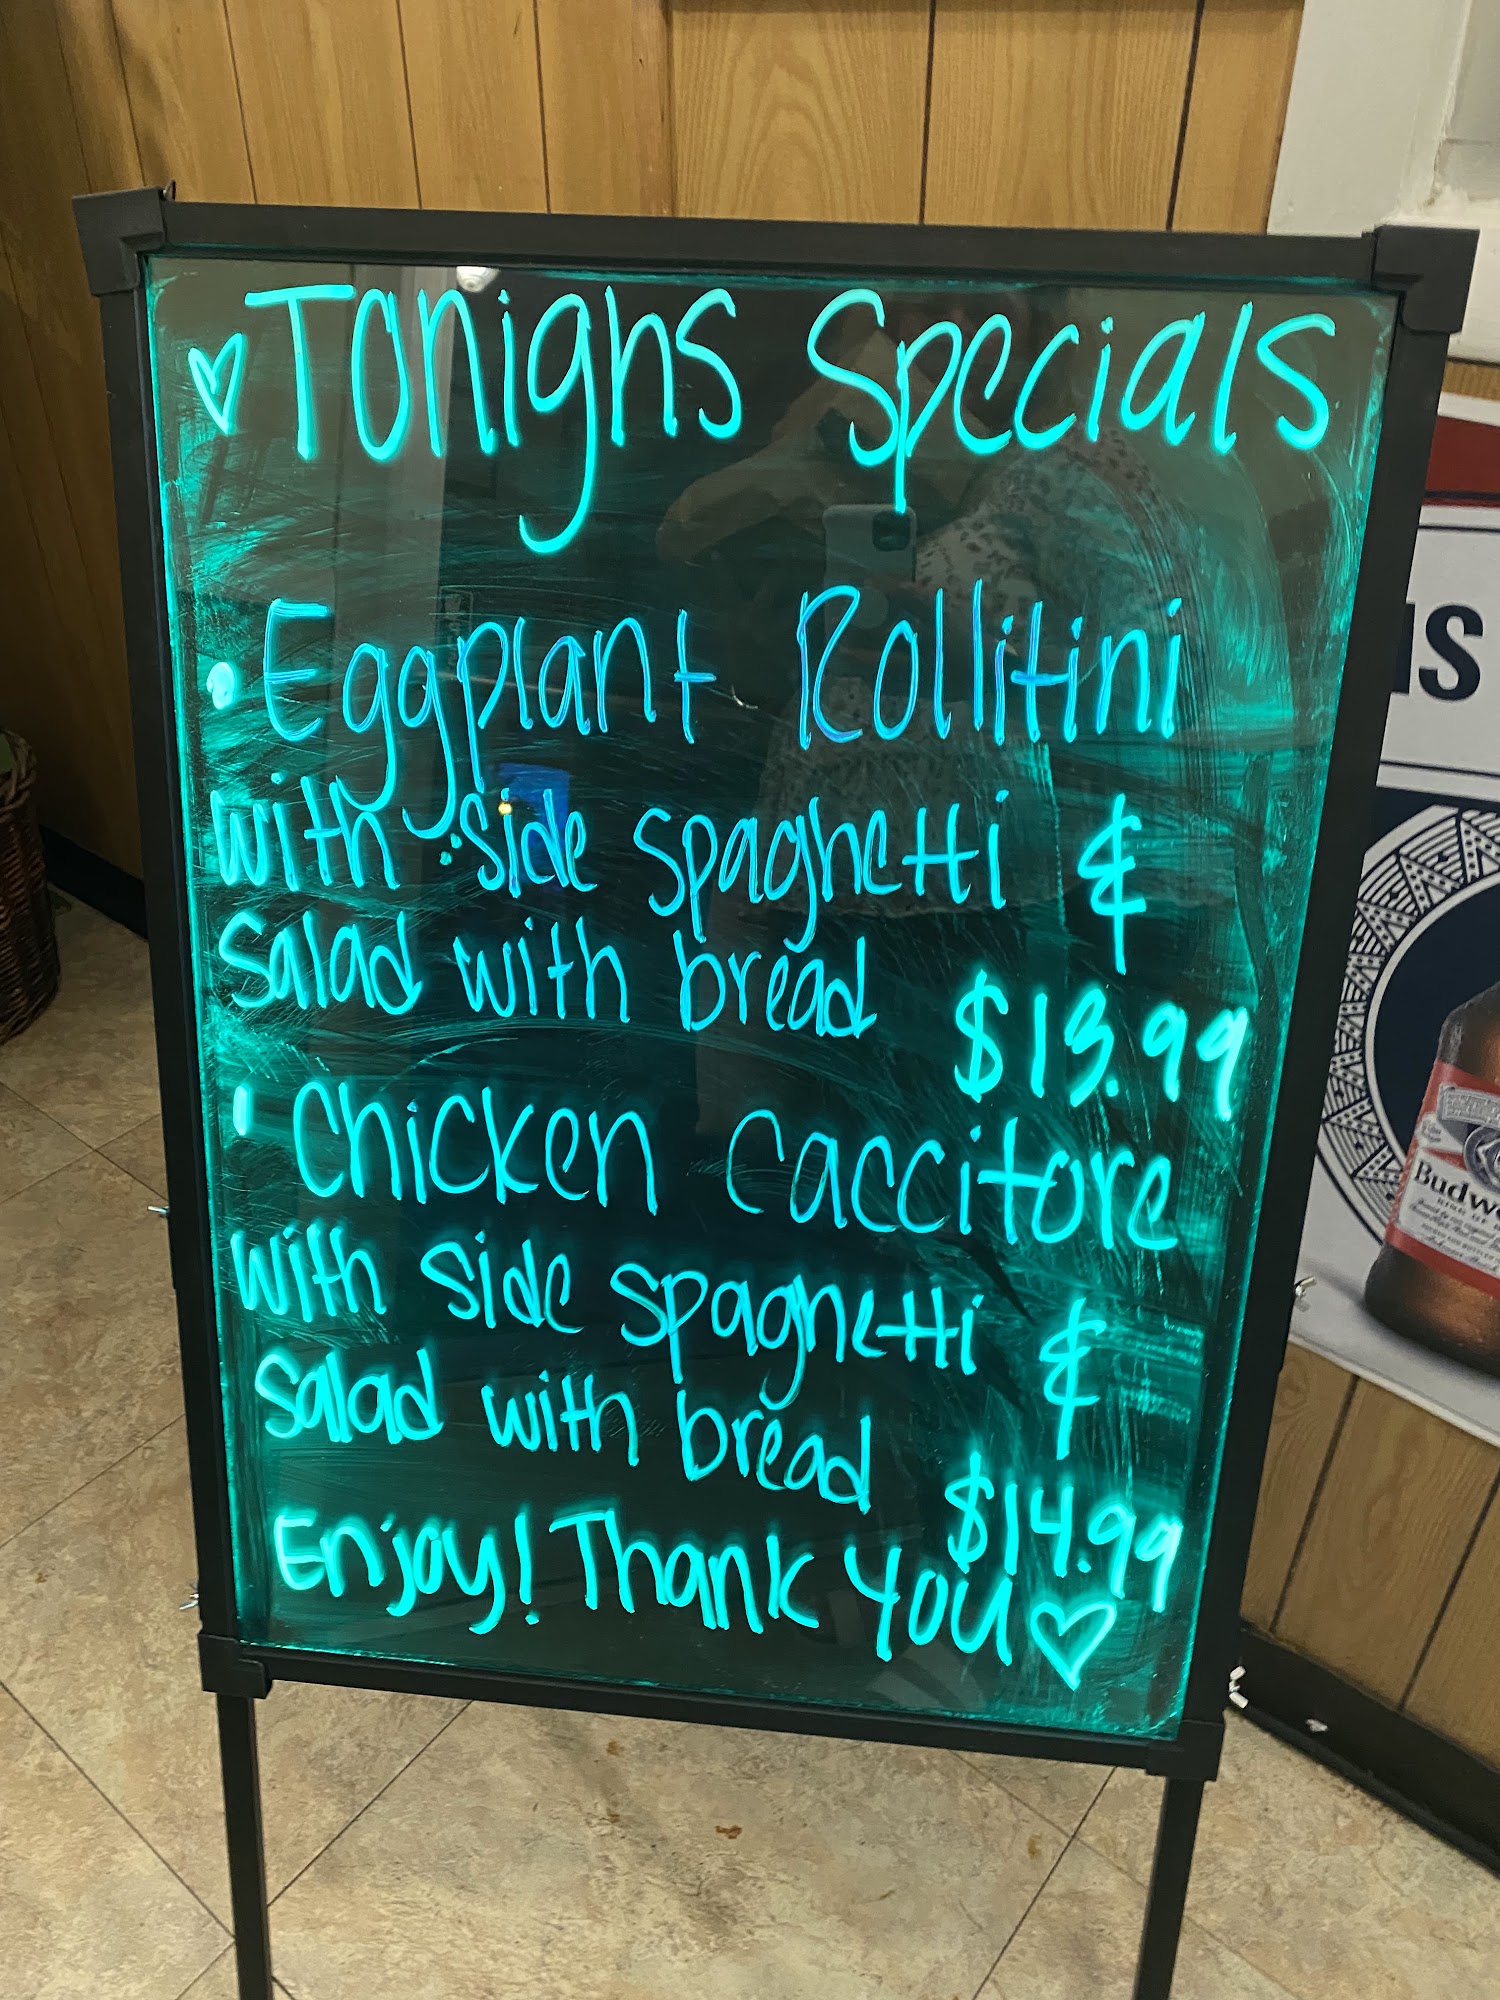 ♡ Tonighs Specials
• Eggplant Rollitini
with side spaghetti &
Salad with bread $13.99
• Chicken Caccitore
with side spaghetti &
Salad with bread $14.99
Enjoy! Thank You ♡
IS
Budwe